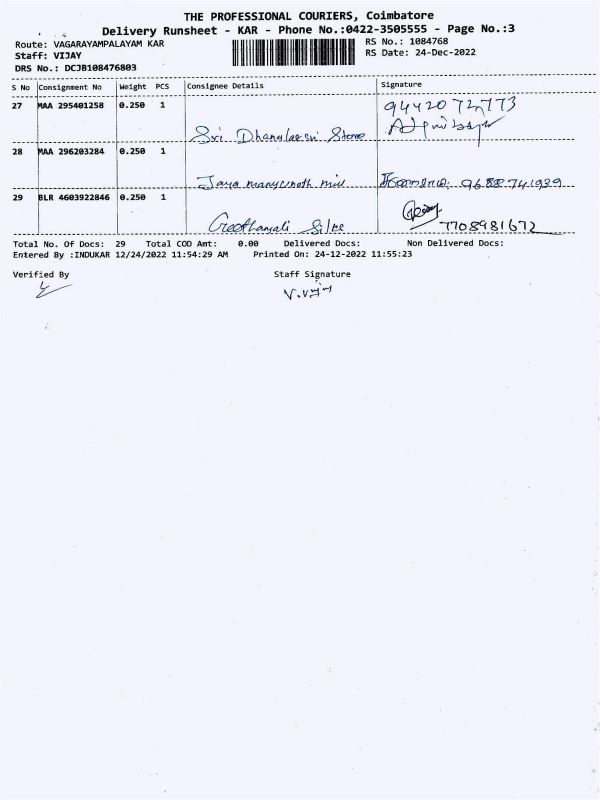 THE PROFESSIONAL COURIERS, Coimbatore
Delivery Runsheet - KAR - Phone No.:0422-3505555 - Page No.:3
Route: VAGARAYAMPALAYAM KAR
RS No.: 1084768
Staff: VIJAY
RS Date: 24-Dec-2022
DRS No.: DCJB108476803
S No Consignment No Weight PCS Consignee Details Signature
27 MAA 295401258 0.250 1
Sri Dhanalaxmi Stores
28 MAA 296203284 0.250 1
Jaya 9688741939
29 BLR 4603922846 0.250 1
Geethanjali Silks 7708981672
Total No. Of Docs: 29 Total COD Amt: 0.00 Delivered Docs: Non Delivered Docs:
Entered By :INDUKAR 12/24/2022 11:54:29 AM Printed On: 24-12-2022 11:55:23
Verified By Staff Signature
V.Vijay